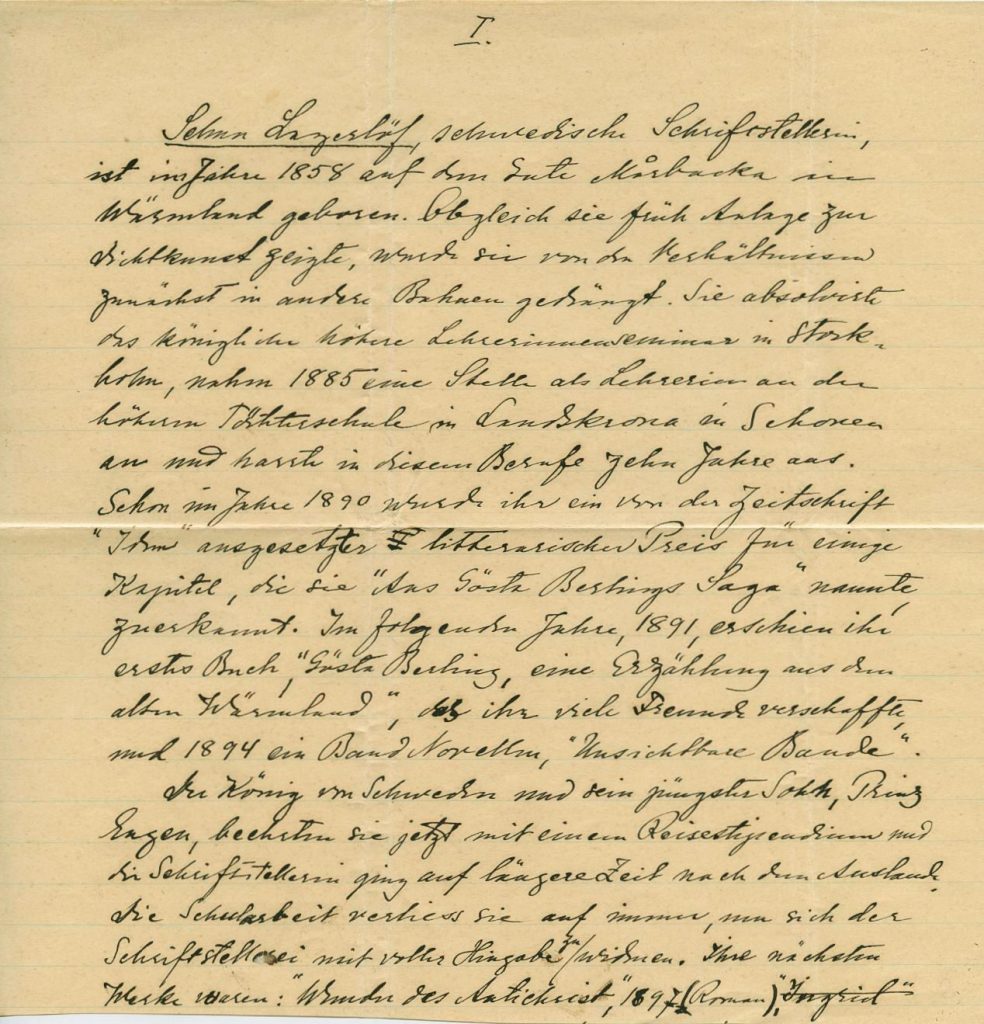 I.
Selma Lagerlöf, schwedische Schriftstellerin,
ist im Jahre 1858 auf dem Gute Mårbacka in
Wärmland geboren. Obgleich sie früh Anlage zur
Dichtkunst zeigte, wurde sie von den Verhältnissen
zunächst in andere Bahnen gedrängt. Sie absolvirte
das königliche höhere Lehrerinnenseminar in Stock-
holm, nahm 1885 eine Stelle als Lehrerin an der
höheren Töchterschule in Landskrona in Schonen
an und harrte in diesem Berufe zehn Jahre aus.
Schon im Jahre 1890 wurde ihr ein von der Zeitschrift
"Idun" ausgesetzter litterarischer Preis für einige
Kapitel, die sie "Aus Gösta Berlings Saga" nannte,
zuerkannt. Im folgenden Jahre, 1891, erschien ihr
erstes Buch, "Gösta Berling, eine Erzählung aus dem
alten Wärmland", das ihr viele Freunde verschaffte,
und 1894 ein Band Novellen, "Unsichtbare Bande".
Der König von Schweden und sein jüngster Sohn, Prinz
Eugen, beehrten sie jetzt mit einem Reisestipendium und
die Schriftstellerin ging auf längere Zeit nach dem Auslande.
Die Schularbeit verliess sie auf immer, um sich der
Schriftstellerei mit voller Hingabe zu widmen. Ihre nächsten
Werke waren: "Wunder des Antichrist," 1897 (Roman), "Ingrid"